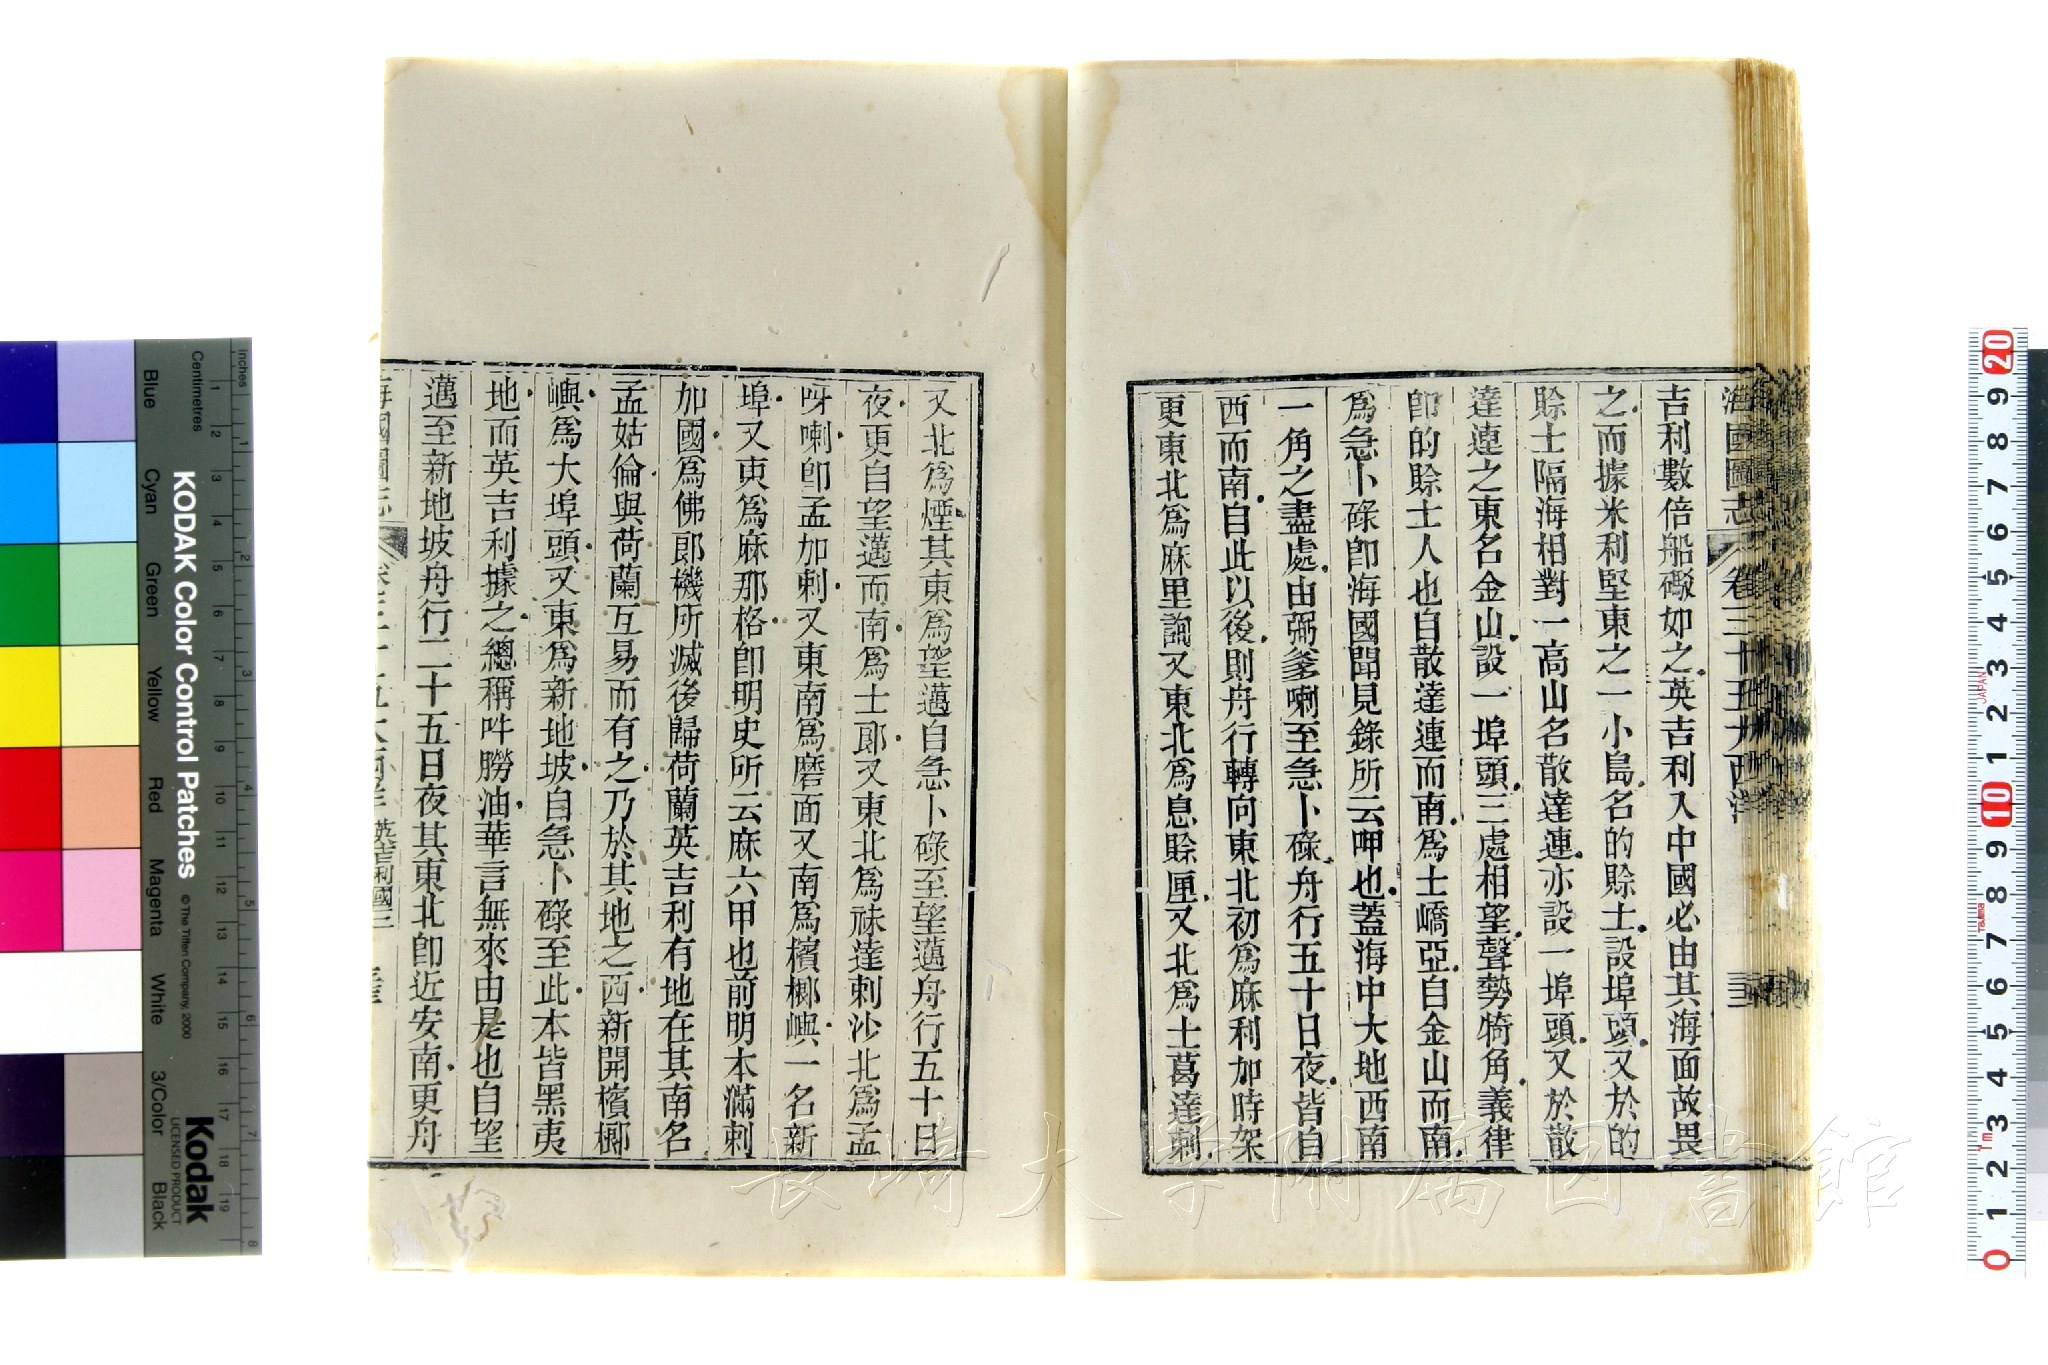 海國圖志 卷三十五大西洋 三三
吉利數倍船礮如之英吉利入中國必由其海面故畏
之而據米利堅東之一小島名的賒士設埠頭又於的
賒士隔海相對一高山名散達連亦設一埠頭又於散
達連之東名金山設一埠頭三處相望聲勢犄角義律
卽的賒士人也自散達連而南爲士嶠亞自金山而南
爲急卜碌卽海國聞見錄所云呷也蓋海中大地西南
一角之盡處由弼爹喇至急卜碌舟行五十日夜皆自
西而南自此以後則舟行轉向東北初爲麻利加時架
更東北爲麻里詥又東北爲息賒厘又北爲士葛達剌
又北爲煙其東爲望邁自急卜碌至望邁舟行五十日
夜更自望邁而南爲士郞又東北爲祙達剌沙北爲孟
呀喇卽孟加剌又東南爲磨面又南爲檳榔嶼一名新
埠又東爲麻那格卽明史所云麻六甲也前明本滿剌
加國爲佛郎機所滅後歸荷蘭英吉利有地在其南名
孟姑倫與荷蘭互易而有之乃於其地之西新開檳榔
嶼爲大埠頭又東爲新地坡自急卜碌至此本皆黑夷
地而英吉利據之總稱吽朥油華言無來由是也自望
邁至新地坡舟行二十五日夜其東北卽近安南更舟
海國圖志 卷三十五大西洋 英吉利國三
KODAK Color Control Patches © The Tiffen Company, 2000
Kodak
LICENSED PRODUCT
Inches
Centimetres
Blue Cyan Green Yellow Red Magenta White 3/Color Black
1 2 3 4 5 6 7 8 9 10 11 12 13 14 15 16 17 18 19
1 2 3 4 5 6 7 8
20 9 8 7 6 5 4 3 2 1 10 9 8 7 6 5 4 3 2 1 0
JAPAN
1m
長崎大学附属図書館